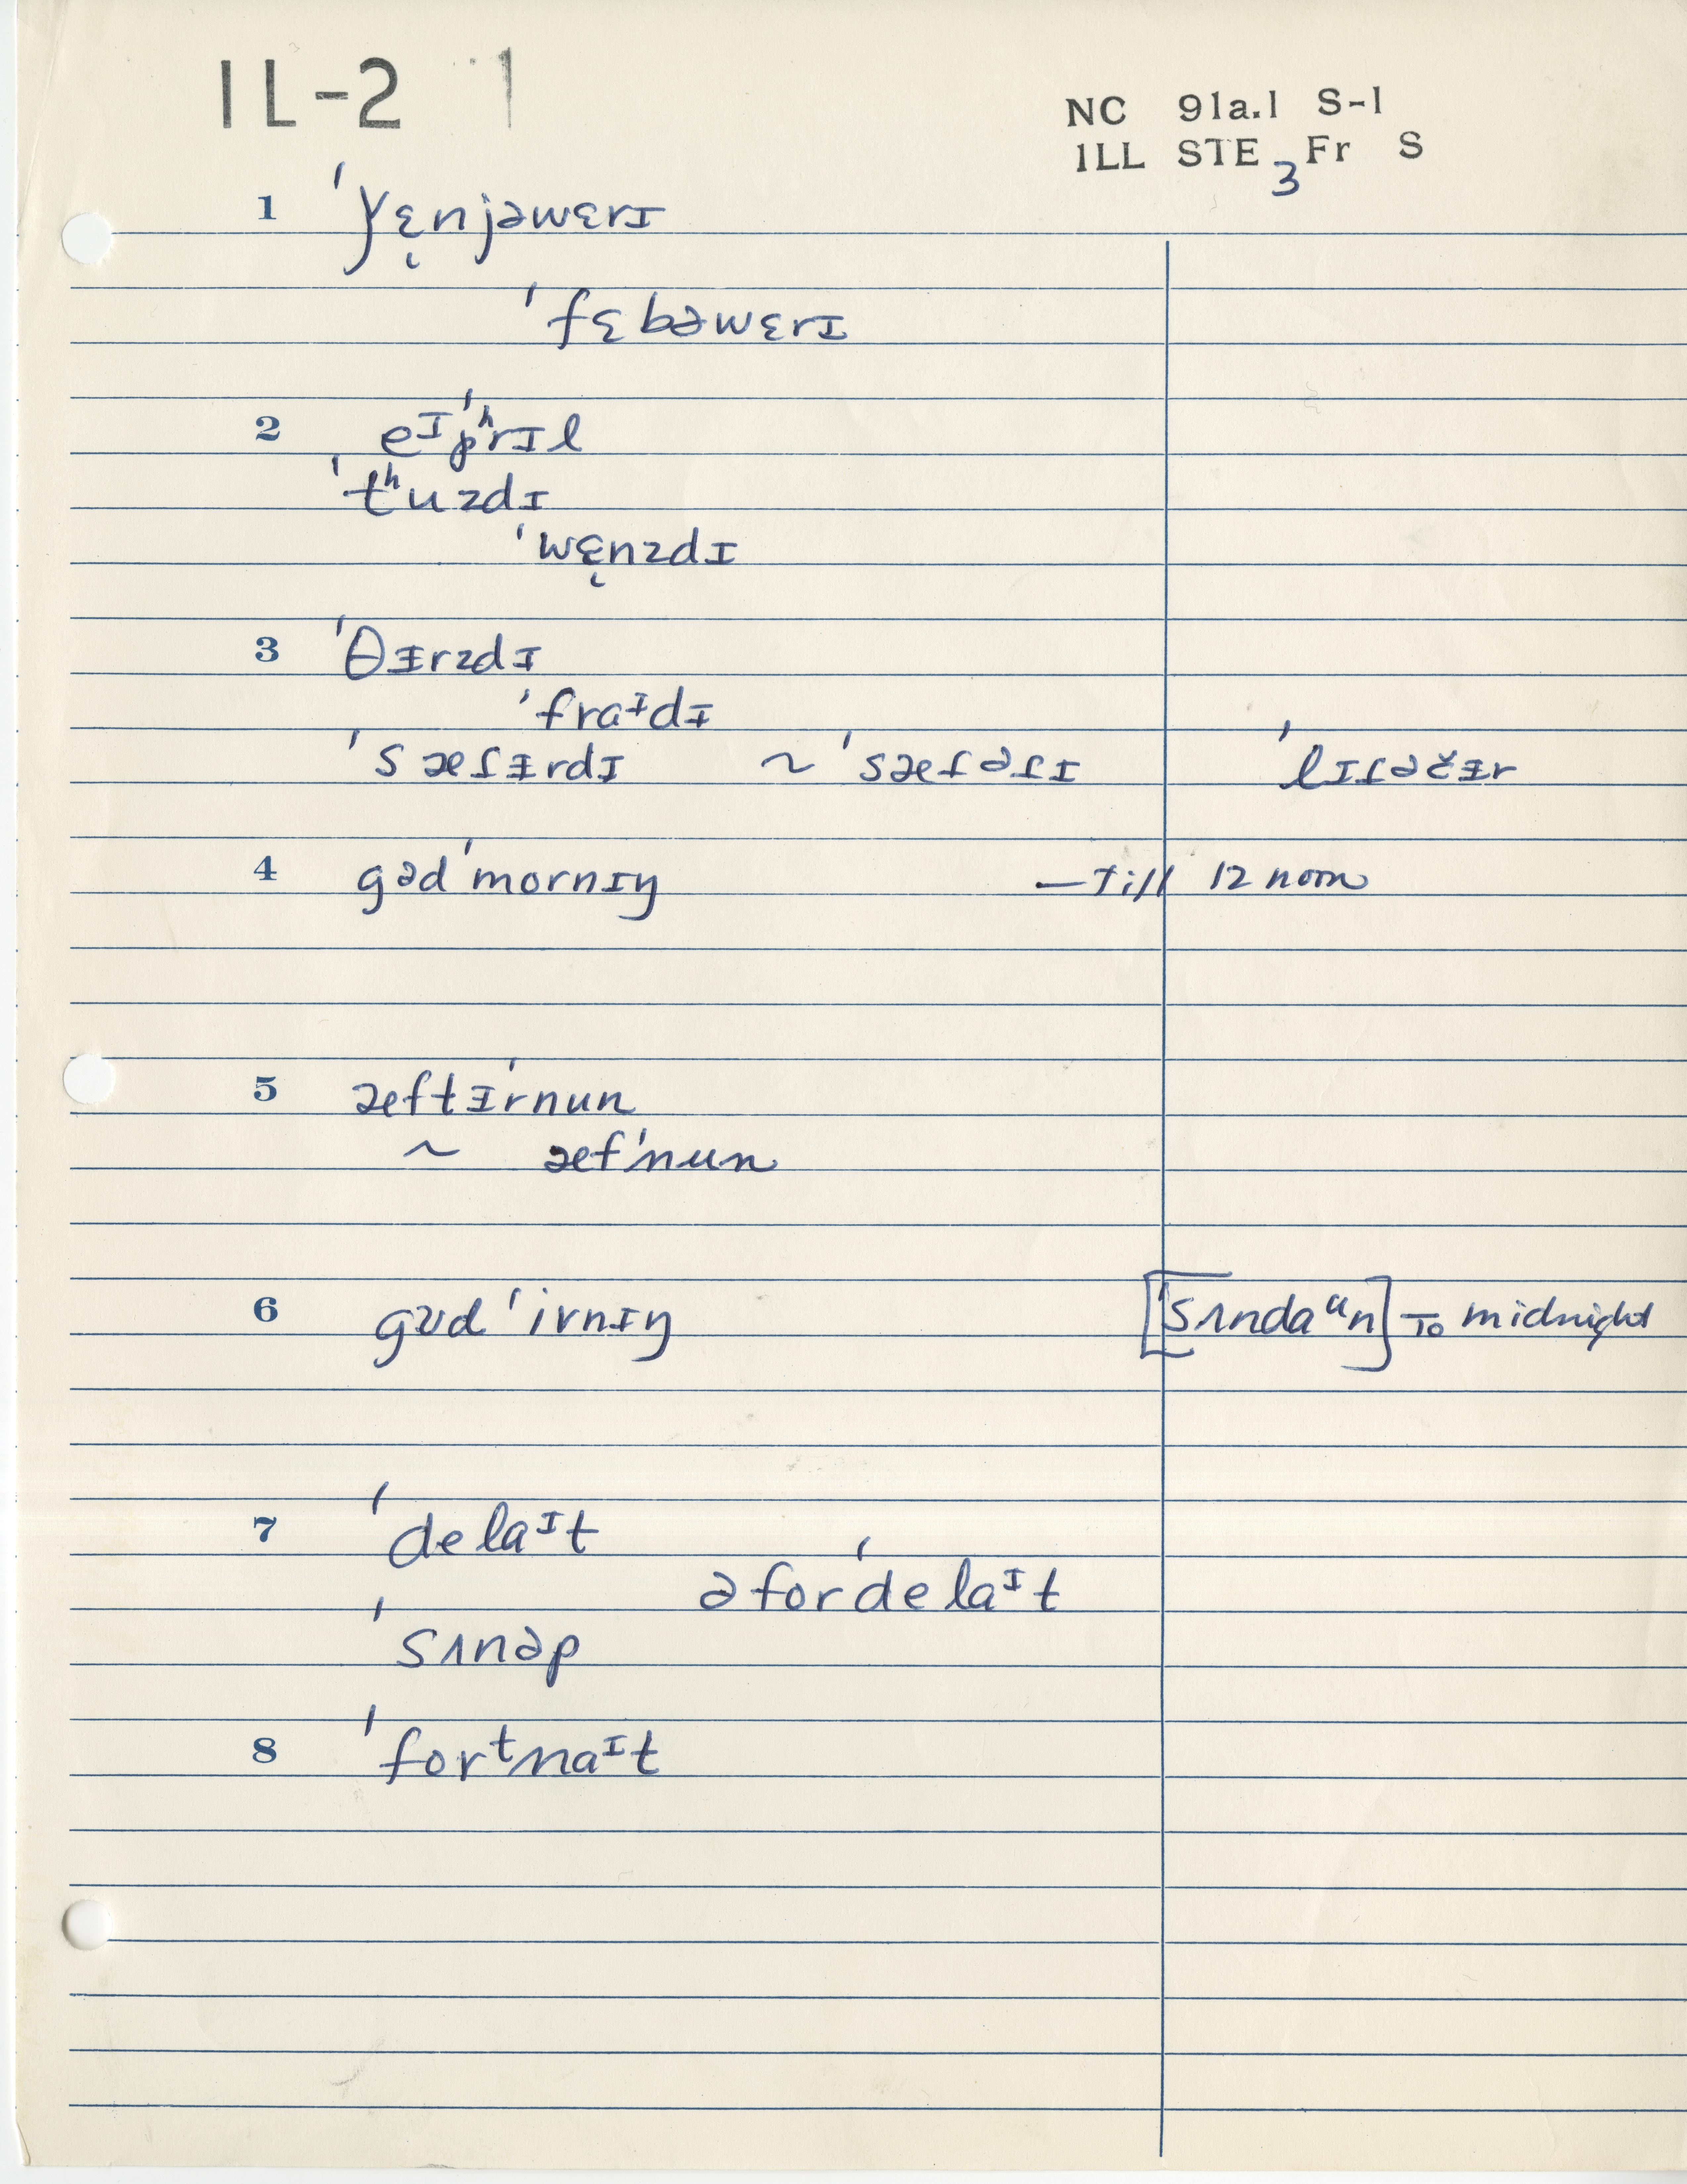 IL-2 1
NC 91a.1 S-1
ILL STE Fr S
3
1 ˈǰɛ̨njəwɛrɪ
ˈfɛbəwɛrɪ
2 eᴵˈpʰrɪl
ˈtʰuzdɪ
ˈwɛ̨nzdɪ
3 ˈθɨrzdɪ
ˈfraᴵdɪ
ˈsæɾɨrdɪ ~ ˈsæɾəɾɪ ˈlɪɾəčɨr
4 gəd ˈmornɪŋ — Till 12 noon
5 æftɨrˈnun
~ æfˈnun
6 gʊd ˈivnɪŋ [ˈsʌndaᵘn] To midnight
7 ˈdelaᴵt
əforˈdelaᴵt
ˈsʌnəp
8 ˈforᵗnaᴵt